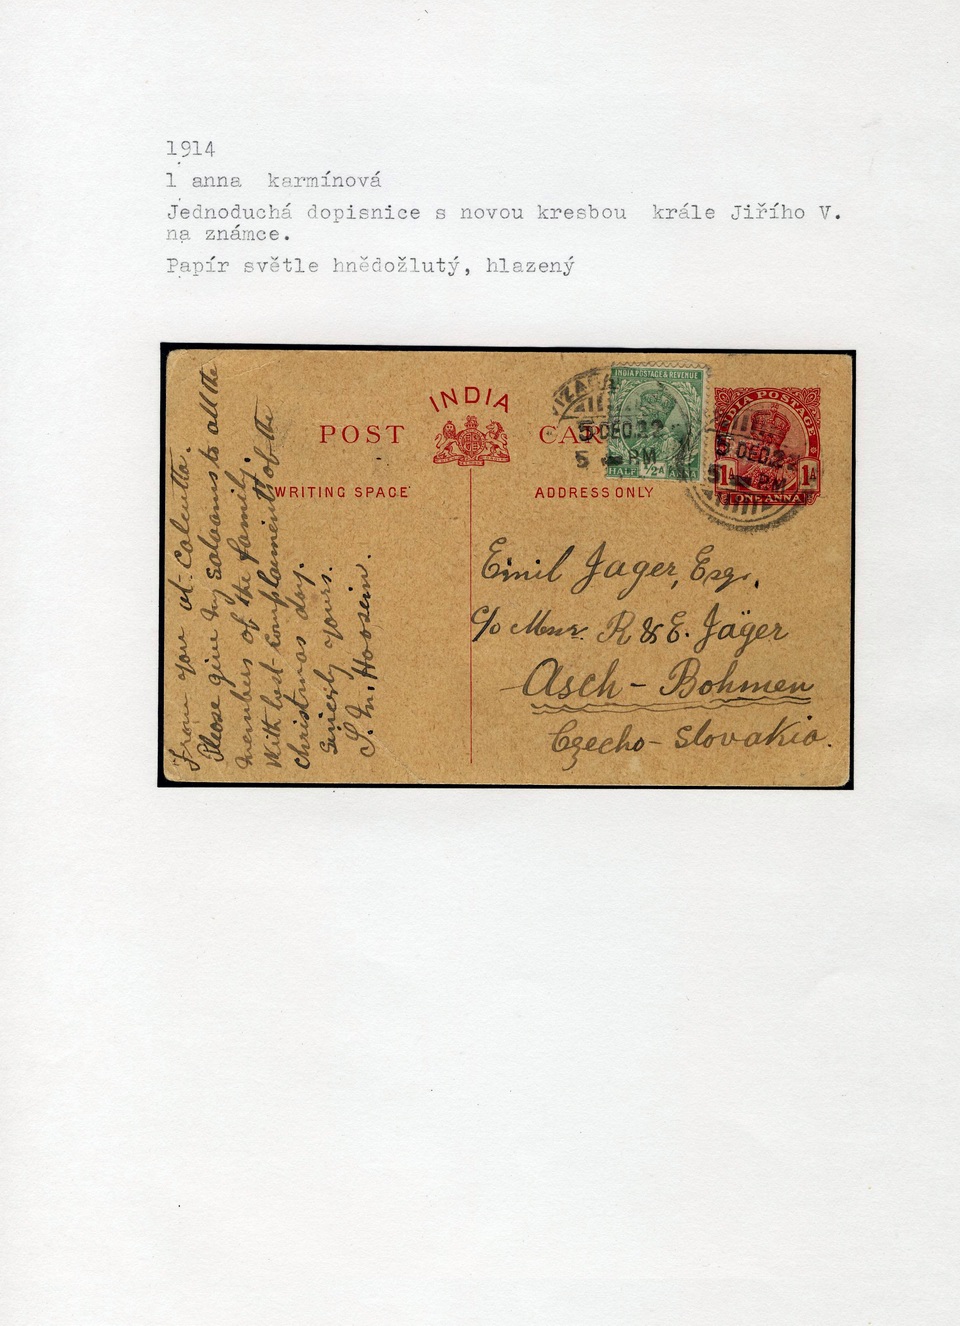 1914
1 anna karmínová
Jednoduchá dopisnice s novou kresbou krále Jiřího V.
na známce.
Papír světle hnědožlutý, hlazený
INDIA
POST CAR
WRITING SPACE
ADDRESS ONLY
INDIA POSTAGE & REVENUE
HALF 1/2A ANNA
5 DEC.22
5 PM
INDIA POSTAGE
1A 1A
ONE ANNA
5 DEC.22
5 PM
From you at Calcutta.
Please give my Salaams to all the
members of the family.
With best compliments of the
Christmas day.
Sincerly yours.
S. M. Hoosein.
Emil Jager, Esq.,
c/o Messr. R & E. Jäger
Asch - Bohmen
Czecho-Slovakia.